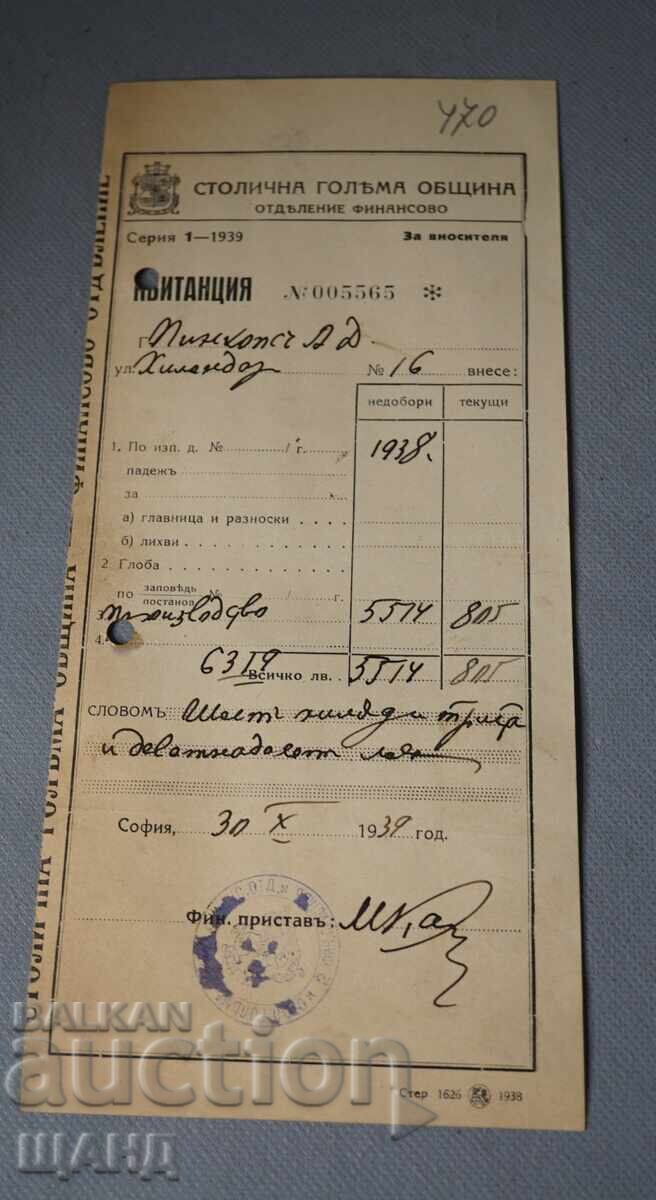 470
СТОЛИЧНА ГОЛѢМА ОБЩИНА
ОТДѢЛЕНИЕ ФИНАНСОВО
Серия 1—1939 За вносителя
КВИТАНЦИЯ № 005565 *
Г. А Д.
ул. Хилендар № 16 внесе:
недобори текущи
1. По изп. д. № / г. 1938.
падежъ
за
а) главница и разноски
б) лихви
2 Глоба
по заповѣдь постанов. № / г.
3. производство 5514 805
4.
6319 Всичко лв. 5514 805
СЛОВОМЪ Шест хиляди триста
и деветнадесет лева
София, 30 X 1939 год.
Фин. приставъ:
Стер 1626 1938
СТОЛИЧНА ГОЛѢМА ОБЩИНА — ФИНАНСОВО ОТДѢЛЕНИЕ
BALKAN
auction
ЩАНД